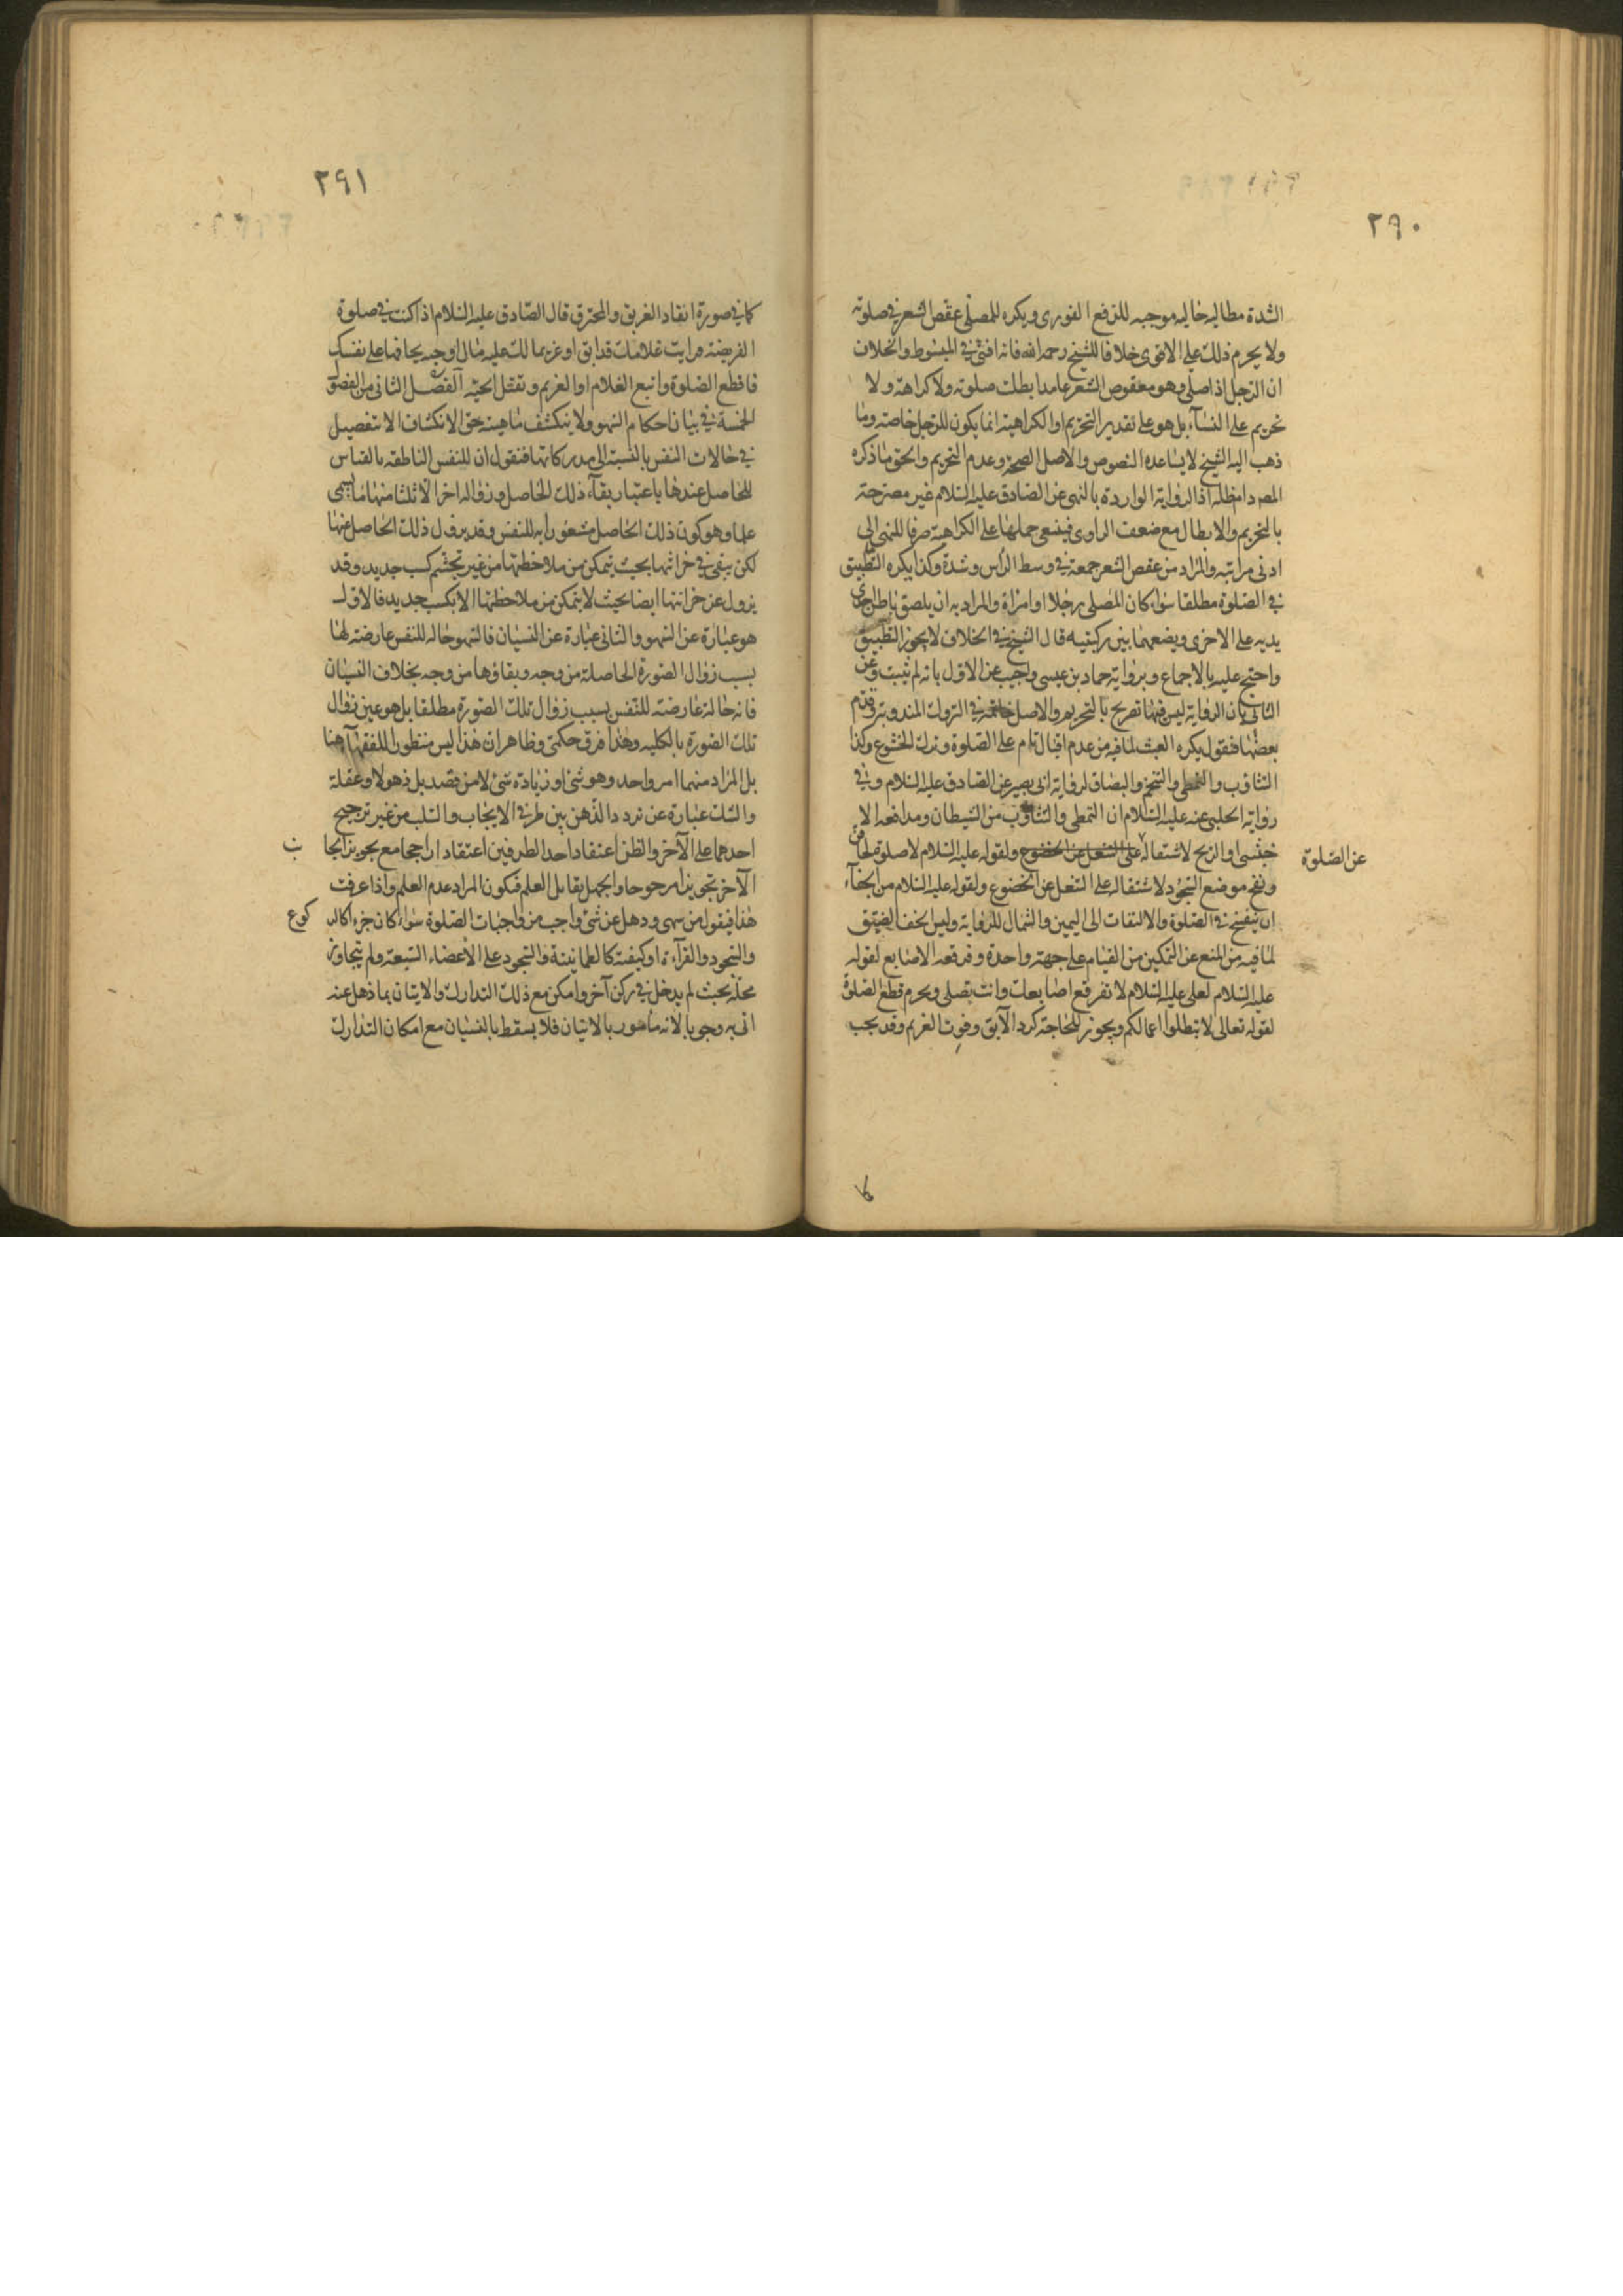 ٢٩٠
الشدة مطالبه حاليه موجبه للدفع الفورى ويكره للمصلى عقص الشعر فى صلوته
ولا يحرم ذلك على الاقوى خلافا للشيخ رحمه الله فانه افتى فى المبسوط والخلاف
ان الرجل اذا صلى وهو معقوص الشعر عامدا بطلت صلوته ولا كراهة ولا
تحريم على النسآء بل هو على تقدير التحريم او الكراهية انما يكون للرجل خاصة وما
ذهب اليه الشيخ لا يساعده النصوص والاصل الصحة وعدم التحريم والحق ما ذكره
المصر دام ظله اذ الرواية الواردة بالنهى عن الصادق عليه السلام غير مصرحة
بالتحريم والابطال مع ضعف الراوى فينبغى حملها على الكراهة صرفا للنهى الى
ادنى مراتبه والمراد من عقص الشعر جمعه فى وسط الرأس وشده وكذا يكره التطبيق
فى الصلوة مطلقا سواء كان المصلى رجلا او امرأة والمراد به ان يلصق باطن احدى
يديه على الاخرى ويضعهما بين ركبتيه قال الشيخ فى الخلاف لا يجوز التطبيق
واحتج عليه بالاجماع وبرواية حماد بن عيسى واجيب عن الاول بانه لم يثبت وعن
الثانى بان الرواية ليس فيها تصريح بالتحريم والاصل فى التروك المندوبة وقدم
بعضها فنقول يكره العبث لما فيه من عدم اقبال تام على الصلوة وترك الخشوع وكذا
التثاوب والتمطى والتنخم والبصاق لرواية ابى بصير عن الصادق عليه السلام وفى
رواية الحلبى عنه عليه السلام ان التمطى والتثاوب من الشيطان ومدافعه الا
خبثى او الريح لاشتماله على الشغل عن الخضوع ولقوله عليه السلام لا صلوة لحاقن
عن الصلوة
ونفخ موضع السجود لاشتماله على الشغل عن الخضوع ولقوله عليه السلام من الجفآء
ان ينفخ فى الصلوة والالتفات الى اليمين والشمال للرواية ولبس الخف الضيق
لما فيه من المنع عن التمكين من القيام على جهة واحدة وفرقعه الاصابع لقوله
عليه السلام لعلى عليه السلام لا تفرقع اصابعك وانت تصلى ويحرم قطع الصلوة
لقوله تعالى لا تبطلوا اعمالكم ويجوز للحاجة كرد الآبق وفوت الغريم وقد يجب
٢٩١
كما فى صورة انقاذ الغريق والمحترق قال الصادق عليه السلام اذا كنت فى صلوة
الفريضة ورايت غلاما لك قد ابق او غريما لك عليه مال او حيه يخافها على نفسك
فاقطع الصلوة واتبع الغلام او الغريم وتقتل الحيه الفصل الثانى من الفصول
الخمسة فى بيان احكام السهو ولا ينكشف ماهيته حق الانكشاف الا بتفصيل
فى حالات النفس بالنسبة الى مدركاتها فنقول ان للنفس الناطقه بالقياس
للحاصل عندها باعتبار بقآء ذلك الحاصل وزواله احوالا ثلثا منها ما يسمى
علما وهو كون ذلك الحاصل مشعورا به للنفس وقد يزول ذلك الحاصل عنها
لكن يبقى فى خزانتها بحيث يتمكن من ملاحظتها من غير تجشم كسب جديد وقد
يزول عن خزانتها ايضا بحيث لا يتمكن من ملاحظتها الا بكسب جديد فالاول
هو عبارة عن السهو والثانى عبارة عن النسيان فالسهو حاله للنفس عارضة لها
بسبب زوال الصورة الحاصلة من وجه وبقاؤها من وجه بخلاف النسيان
فانه حالة عارضة للنفس بسبب زوال تلك الصورة مطلقا بل هو عين زوال
تلك الصورة بالكليه وهذا فرق حكمى وظاهر ان هذا ليس منظورا للفقهآء هنا
بل المراد منهما امر واحد وهو شئ او زيادة شئ لا من قصد بل ذهولا وغفلة
والشك عبارة عن تردد الذهن بين طرفى الايجاب والسلب من غير ترجيح
احدهما على الآخر والظن اعتقاد احد الطرفين اعتقادا راجحا مع تجويز ايجا
ب
الآخر تجويزا مرجوحا والجهل يقابل العلم فيكون المراد عدم العلم واذا عرفت
هذا فيقول من سهى وذهل عن شئ واجب من واجبات الصلوة سواء كان جزءا كالر
كوع
والسجود والقرآءة او كيفية كالطمانينة والسجود على الاعضاء السبعة ولم يتجاوز
محله بحيث لم يدخل فى ركن آخر وامكن مع ذلك التدارك والاتيان بما ذهل عنه
اتى به وجوبا لانه مأمور بالاتيان فلا يسقط بالنسيان مع امكان التدارك